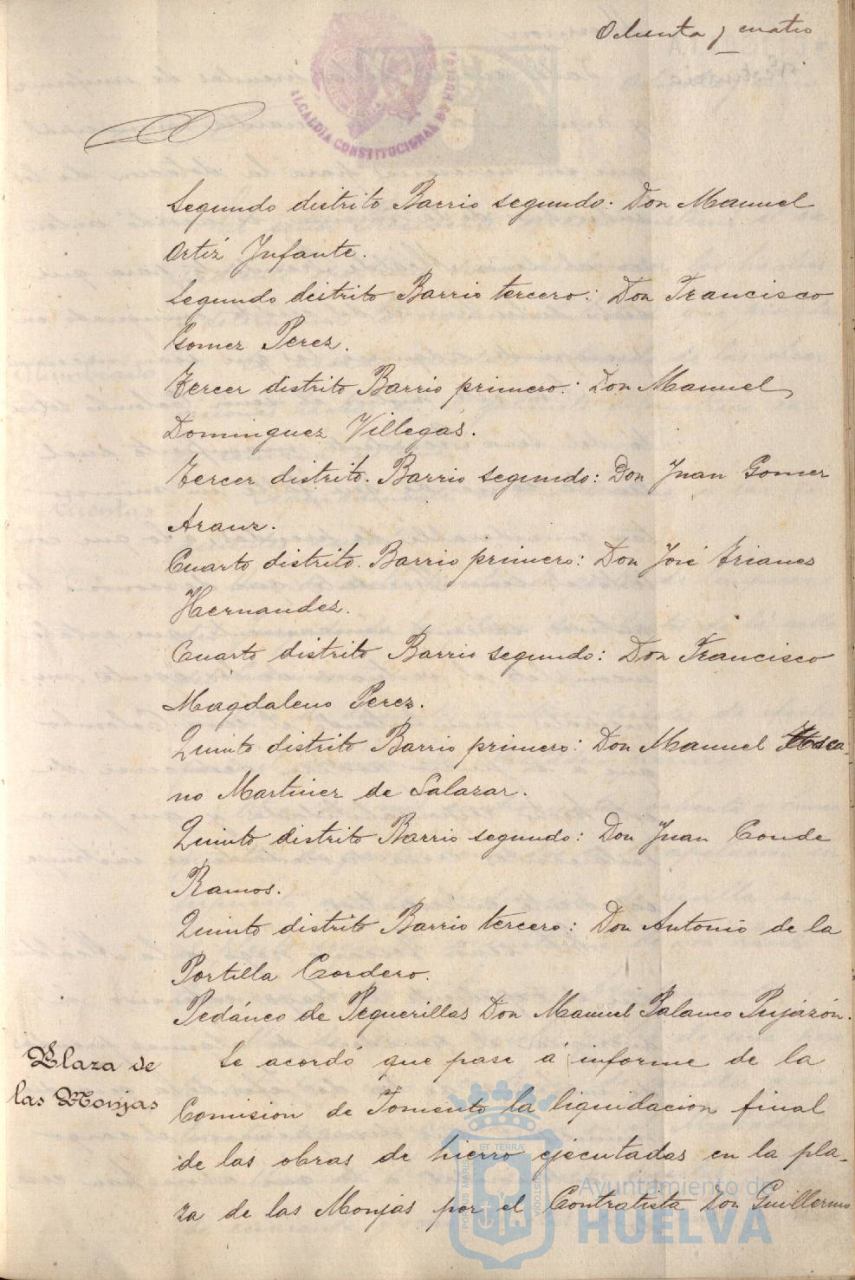 Ochenta y cuatro
ALCALDIA CONSTITUCIONAL DE HUELVA
Segundo distrito Barrio segundo. Don Manuel
Ortiz Infante.
Segundo distrito Barrio tercero: Don Francisco
Gomez Perez.
Tercer distrito Barrio primero: Don Manuel
Dominguez Villegas.
Tercer distrito. Barrio segundo: Don Juan Gomez
Arauz.
Cuarto distrito. Barrio primero: Don José Trianes
Hernandez.
Cuarto distrito Barrio segundo: Don Francisco
Magdaleno Perez.
Quinto distrito Barrio primero: Don Manuel
no Martinez de Salazar.
Quinto distrito Barrio segundo: Don Juan Conde
Ramos.
Quinto distrito Barrio tercero: Don Antonio de la
Portilla Cordero.
Pedáneo de Peguerillas Don Manuel Palanco Pujazón.
Plaza de
las Monjas
Se acordó que pase á informe de la
Comision de Fomento la liquidacion final
de las obras de hierro ejecutadas en la pla-
za de las Monjas por el Contratista Don Guillermo
PORTUS MARIS ET TERRAE CUSTODIA
Ayuntamiento de
HUELVA